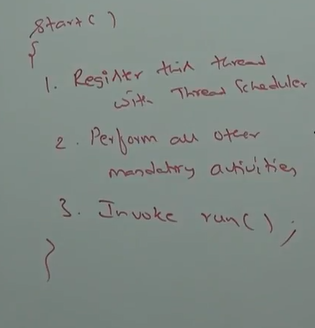 start()
{
1. Register this thread
with Thread Scheduler
2. Perform all other
mandatory activities
3. Invoke run();
}